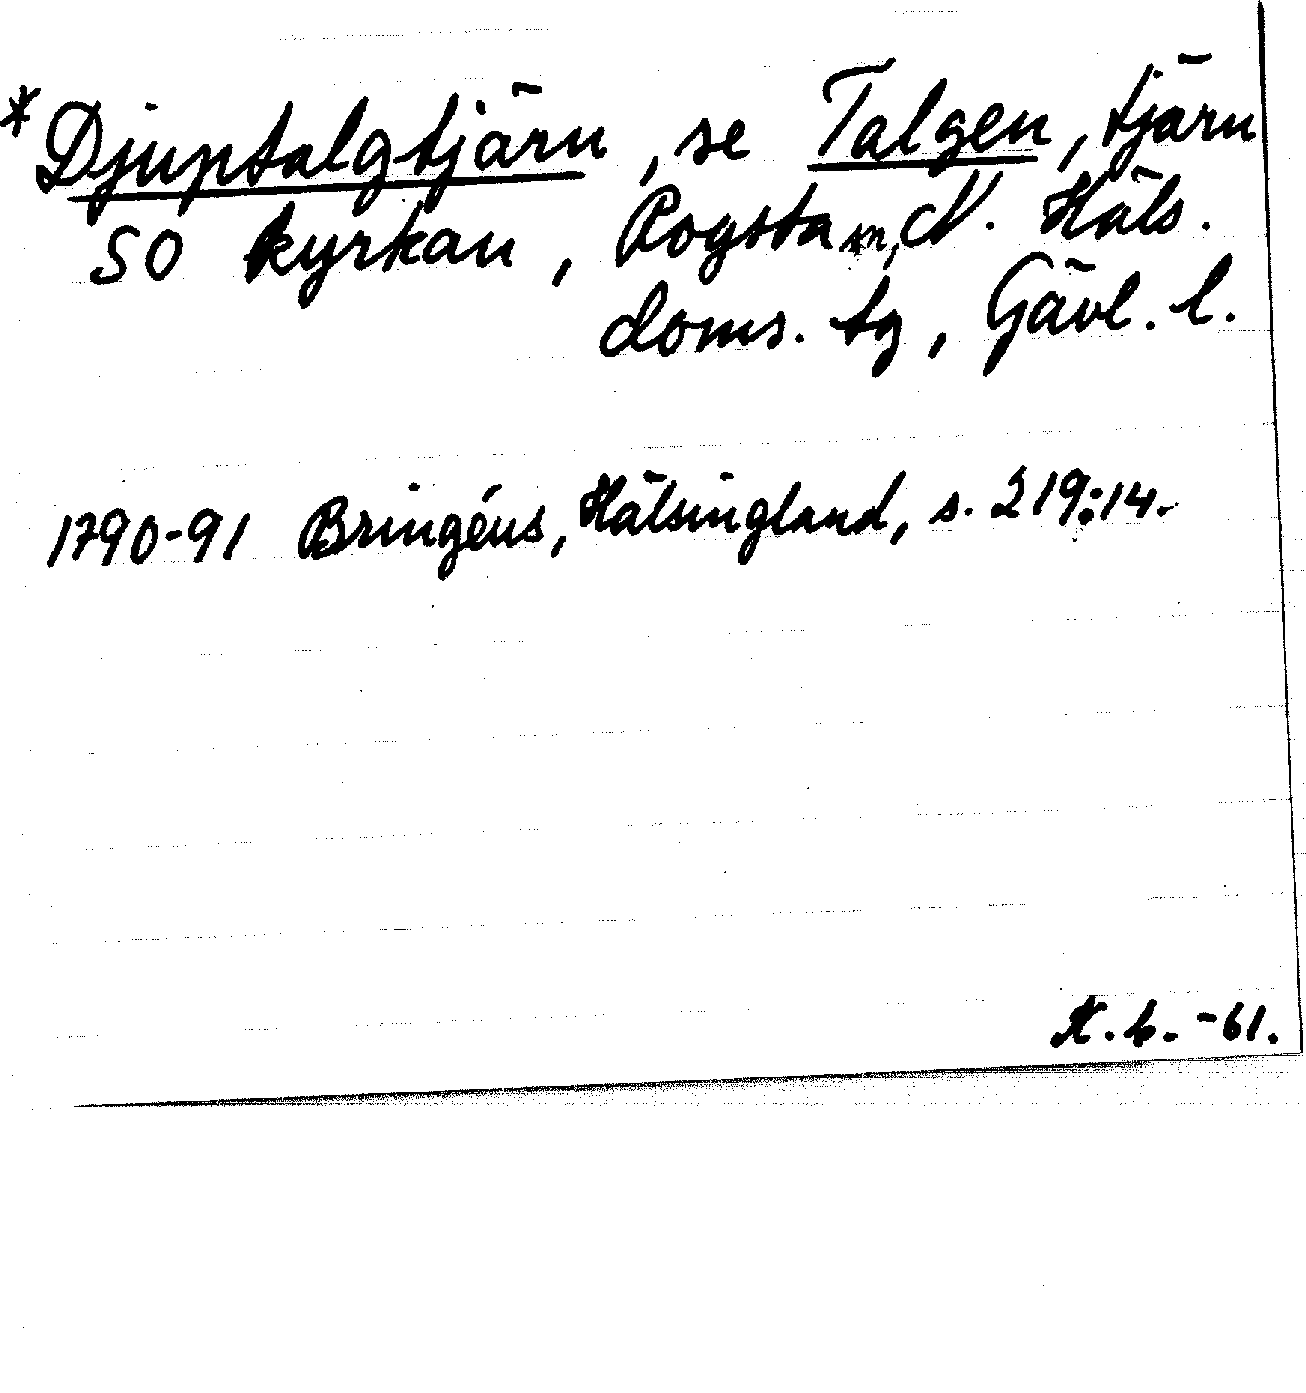 *Djuptalgtjärn, se Talgen, tjärn
SO kyrkan, Rogsta sn, N. Häls.
doms. tg, Gävl. l.
1790-91 Bringéus, Hälsingland, s. 219:14.
K.b. -61.